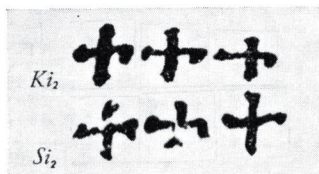 Ki₂
Si₂